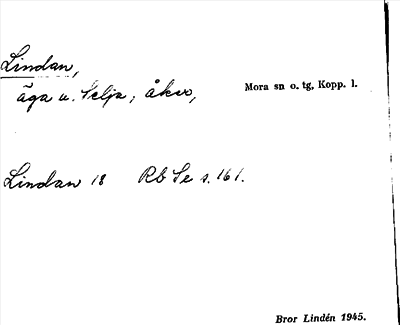 Lindan,
äga u. Selja; åker,
Mora sn o. tg, Kopp. l.
Lindan 18 Rb Se s. 161.
Bror Lindén 1945.